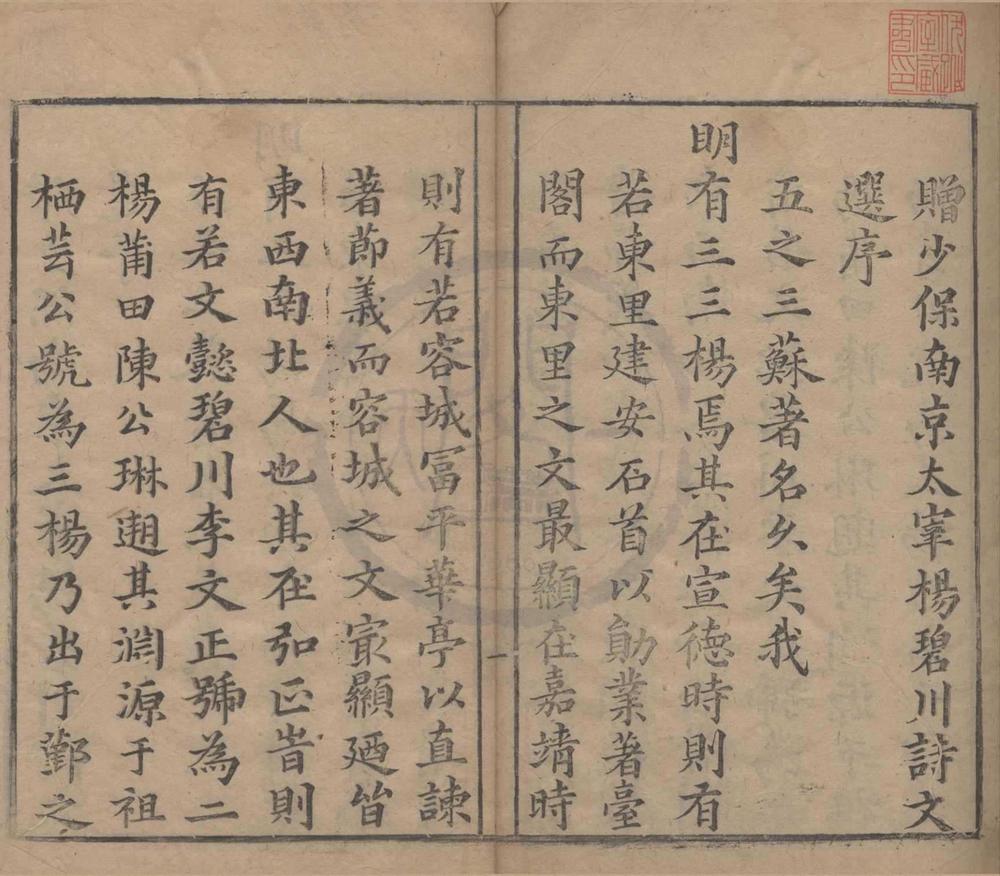 贈少保南京太宰楊碧川詩文
選序
五之三蘇著名久矣我
明有三三楊焉其在宣德時則有
若東里建安石首以勛業著臺
閣而東里之文最顯在嘉靖時
一
則有若容城冨平華亭以直諫
著節義而容城之文㝡顯廼皆
東西南北人也其在弘正峕則
有若文懿碧川李文正號為二
楊莆田陳公琳遡其淵源于祖
栖芸公號為三楊乃出于鄞之